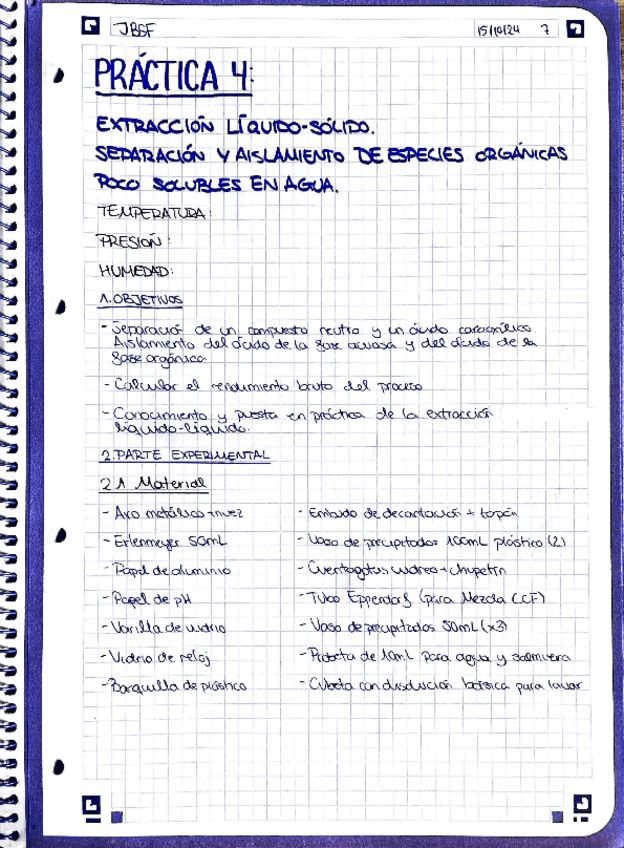 JBGF 15/10/24 7
PRÁCTICA 4:
EXTRACCIÓN LÍQUIDO-SÓLIDO.
SEPARACIÓN Y AISLAMIENTO DE ESPECIES ORGÁNICAS
POCO SOLUBLES EN AGUA.
TEMPERATURA:
PRESIÓN:
HUMEDAD:
1. OBJETIVOS
- Separación de un compuesto neutro y un ácido carboxílico.
Aislamiento del ácido de la fase acuosa y del ácido de la
fase orgánica
- Calcular el rendimiento bruto del proceso
- Conocimiento y puesta en práctica de la extracción
líquido-líquido.
2. PARTE EXPERIMENTAL
2.1 Material
- Aro metálico + nuez - Embudo de decantación + tapón
- Erlenmeyer 50mL - Vaso de precipitados 100mL plástico (2)
- Papel de aluminio - Cuentagotas vidrio + chupetín
- Papel de pH - Tubo Eppendorf (para Mezcla CCF)
- Varilla de vidrio - Vaso de precipitados 50mL (x3)
- Vidrio de reloj - Probeta de 10mL para agua y salmuera
- Barquilla de plástico - Cubeta con disolución básica para lavar